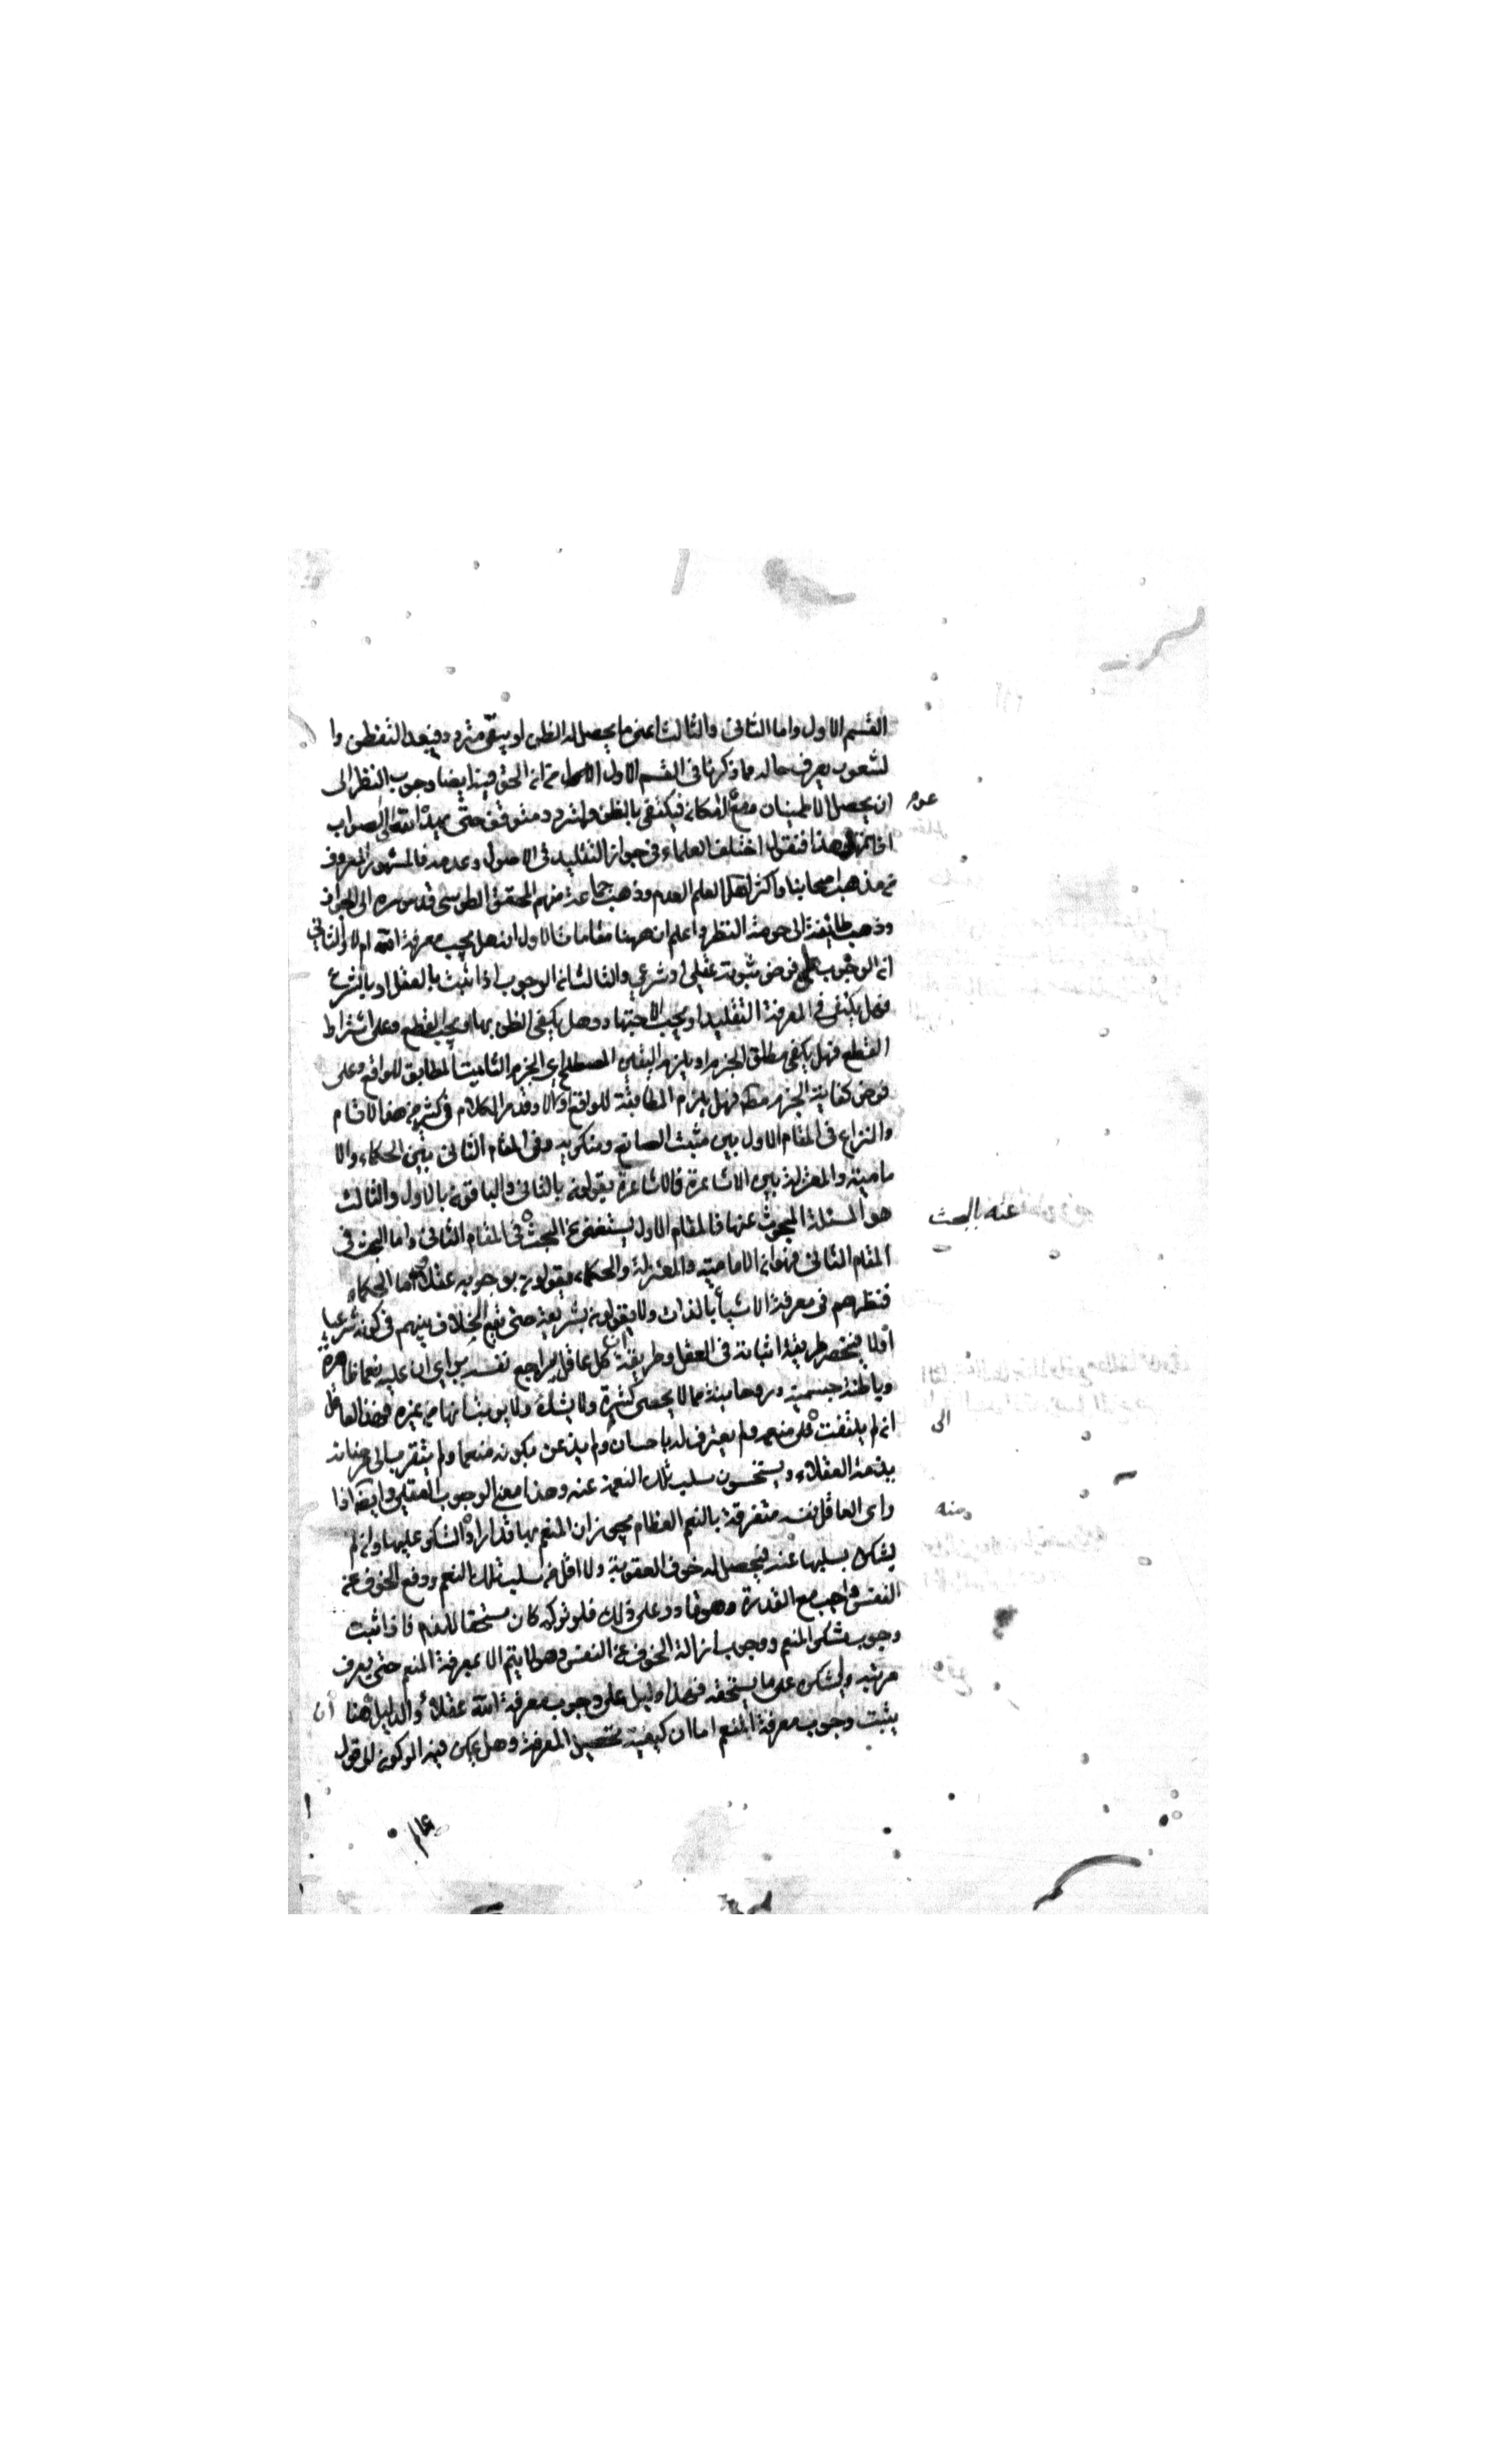 القسم الاول واما الثانى والثالث اعنى ما يحصل له الظن او يبقى مترددا فبعد التفطن وا
لشعور يعرف حاله مما ذكرنا فى القسم الاول من ان الحق فيه ايضا وجوب النظر الى
ان يحصل الاطمينان ومع امكانه فيكتفى بالظن والمتردد متوقف حتى يهديه الله الى الصواب
عدم
اذا تمهد هذا فنقول اختلف العلماء فى جواز التقليد فى الاصول وعدمه فالمشهور المعروف
من مذهب اصحابنا واكثر اهل العلم العدم وذهب جماعة منهم المحقق الطوسى قدس سره الى الجواز
وذهب طائفة الى حرمة النظر واعلم ان ههنا مقامات الاول انه هل يجب معرفة الله ام لا والثانى
ان الوجوب على فرض ثبوته عقلى او شرعى والثالث ان الوجوب اذا ثبت بالعقل او بالشرع
فهل يكتفى فى المعرفة التقليد او يجب الاجتهاد وهل يكفى الظن بها او يجب القطع وعلى اشتراط
القطع فهل يكفى مطلق الجزم او يلزم اليقين المصطلح اى الجزم الثابت المطابق للواقع وعلى
فرض كفاية الجزم مط فهل يلزم المطابقة للواقع او لا وقد مر الكلام فى كثير من هذه الاقسام
والنزاع فى المقام الاول بين مثبت الصانع ومنكريه وفى المقام الثانى بين الحكماء والا
مامية والمعتزلة بين الاشاعرة فالاشاعرة يقولون بالثانى والباقون بالاول والثالث
هو المسئلة المبحوث عنها فالمقام الاول يستغنى عن البحث فى المقام الثانى واما البحث فى
عنه بالبحث
المقام الثانى فهو ان الامامية والمعتزلة والحكماء يقولون بوجوبه عقلا اما الحكماء
فنظرهم فى معرفة الاشياء بالذات ولا يقولون بشريعة حتى يقع الخلاف بينهم فى كونه شرعيا
او لا فينحصر طريقة اثباته فى العقل وطريقة ان كل عاقل يراجع نفسه يرى ان عليه نعما ظاهرة
وباطنة جسمية وروحانية مما لا يحصى كثرة ولا يشك ولا يريب انها من غيره فهذا العاقل
ان لم يلتفت الى منعمه ولم يعترف له باحسان ولم يذعن بكونه منعما ولم يتقرب الى مرضاته
الى
يذمه العقلاء ويستحسنون سلب تلك النعمة عنه وهذا معنى الوجوب العقلى وايضا اذا
راى العاقل نفسه متفرقة بالنعم العظام يجوز ان المنعم بها قد اراد الشكر عليها وان لم
منه
يشكر يسلبها عنه فيحصل له خوف العقوبة ولا اقل من سلب تلك النعم ودفع الخوف عن
النفس واجب مع القدرة وهو قادر على ذلك فلو تركه كان مستحقا للذم فاذا ثبت
وجوب شكر المنعم ووجوب ازالة الخوف عن النفس وهو لا يتم الا بمعرفة المنعم حتى يعرف
مرتبه ويشكر على ما يستحقه فهذا دليل على وجوب معرفة الله عقلا والدليل هنا ان
يثبت وجوب معرفة المنعم اما ان كيفية تحصيل المعرفة وهل يمكن فيه الركون الى قول